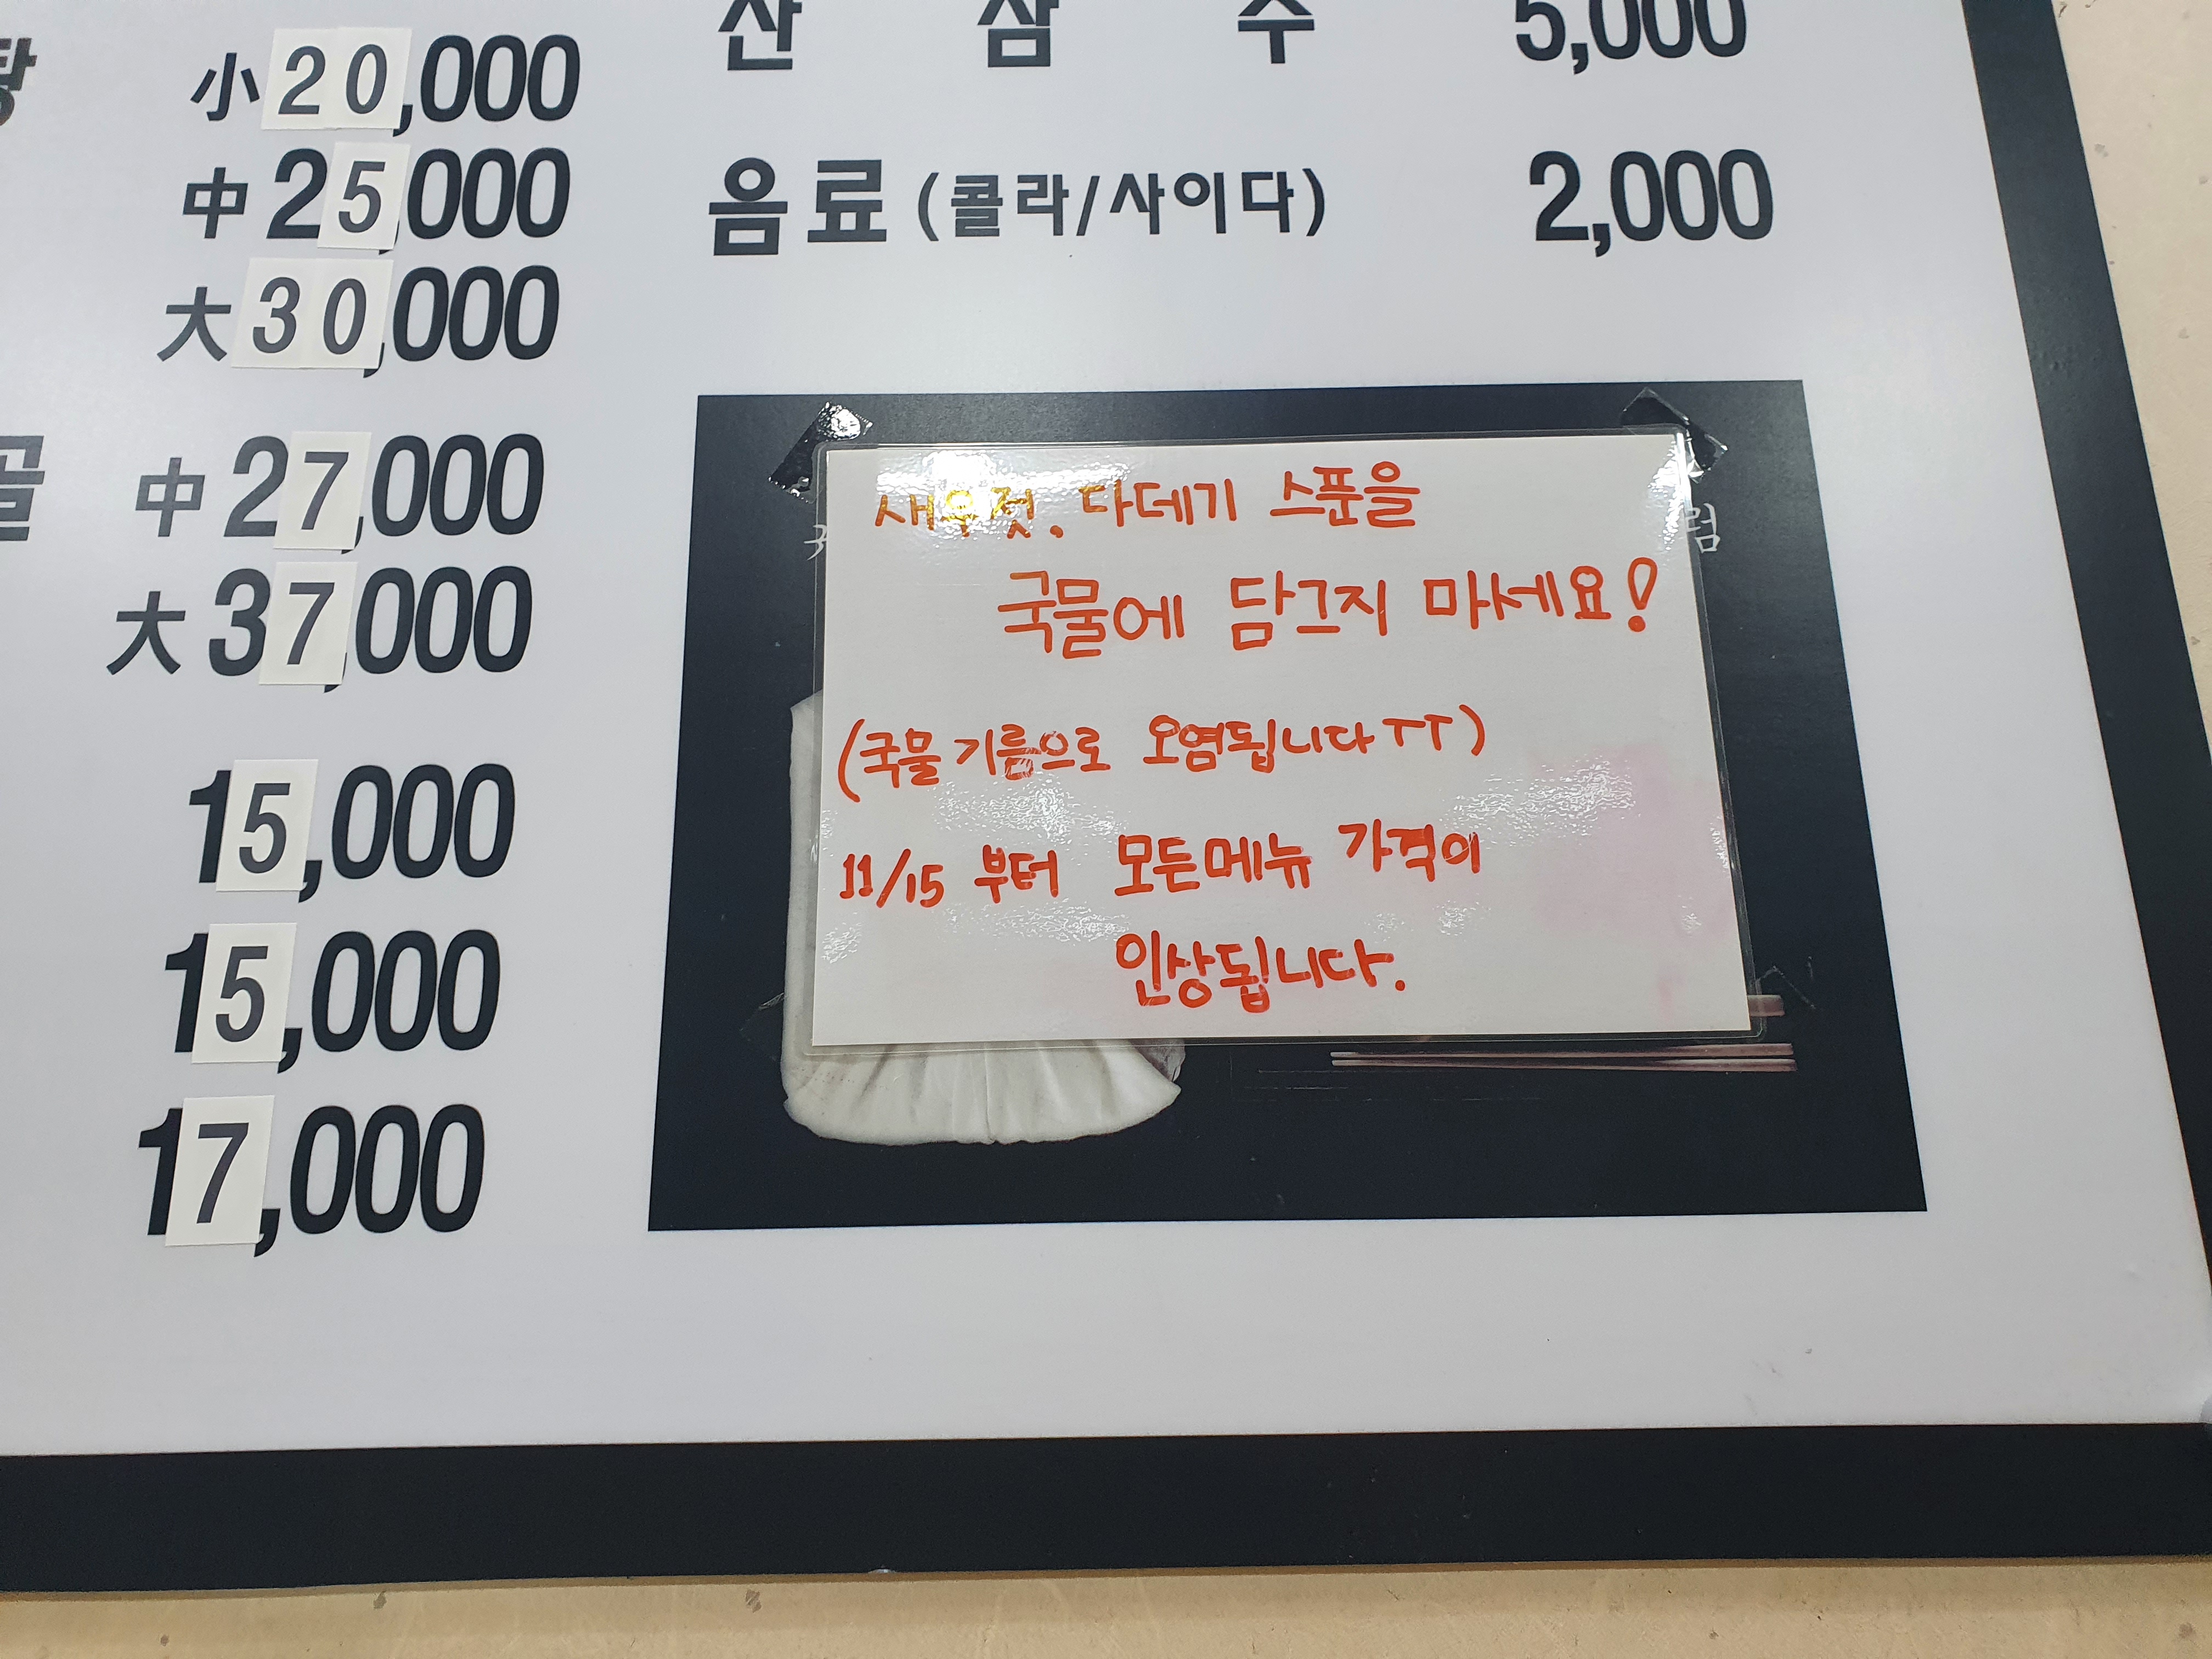 탕 小 20,000
中 25,000
大 30,000
골 中 27,000
大 37,000
15,000
15,000
17,000
산 삼 주 5,000
음료 (콜라/사이다) 2,000
새우젓. 다데기 스푼을
국물에 담그지 마세요!
(국물 기름으로 오염됩니다 ㅠㅠ)
11/15 부터 모든메뉴 가격이
인상됩니다.
럼